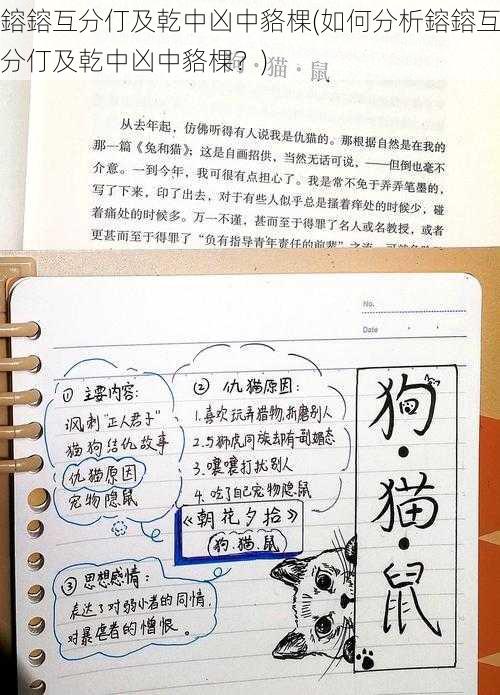 鎔鎔互分仃及乾中凶中貉棵(如何分析鎔鎔互
分仃及乾中凶中貉棵？)
狗·猫·鼠
从去年起，仿佛听得有人说我是仇猫的。那根据自然是在我的
那一篇《兔和猫》；这是自画招供，当然无话可说，——但倒也毫不
介意。一到今年，我可很有点担心了。我是常不免于弄弄笔墨的，
写了下来，印了出去，对于有些人似乎总是搔着痒处的时候少，碰
着痛处的时候多。万一不谨，甚而至于得罪了名人或名教授，或者
更甚而至于得罪了“负有指导青年责任的前辈”之流，可就危险
No.
Date
① 主要内容：
讽刺“正人君子”
猫狗结仇故事
仇猫原因
宠物隐鼠
② 仇猫原因：
1.喜欢玩弄猎物,折磨别人
2.与狮虎同族却有一副媚态
3.嚷嚷打扰别人
4.吃了自己宠物隐鼠
《朝花夕拾》
狗.猫.鼠
③ 思想感情：
表达了对弱小者的同情,
对暴虐者的憎恨。
狗·猫·鼠